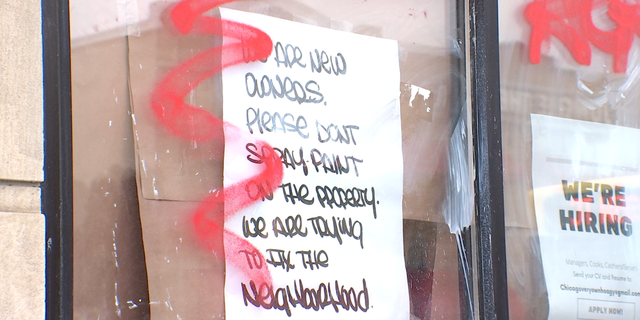 WE ARE NEW
OWNERS.
PLEASE DONT
SPRAY PAINT
ON THE PROPERTY.
WE ARE TRYING
TO FIX THE
NEigHborHood.
WE'RE
HIRING
Send your CV and Resume to
APPLY NOW!